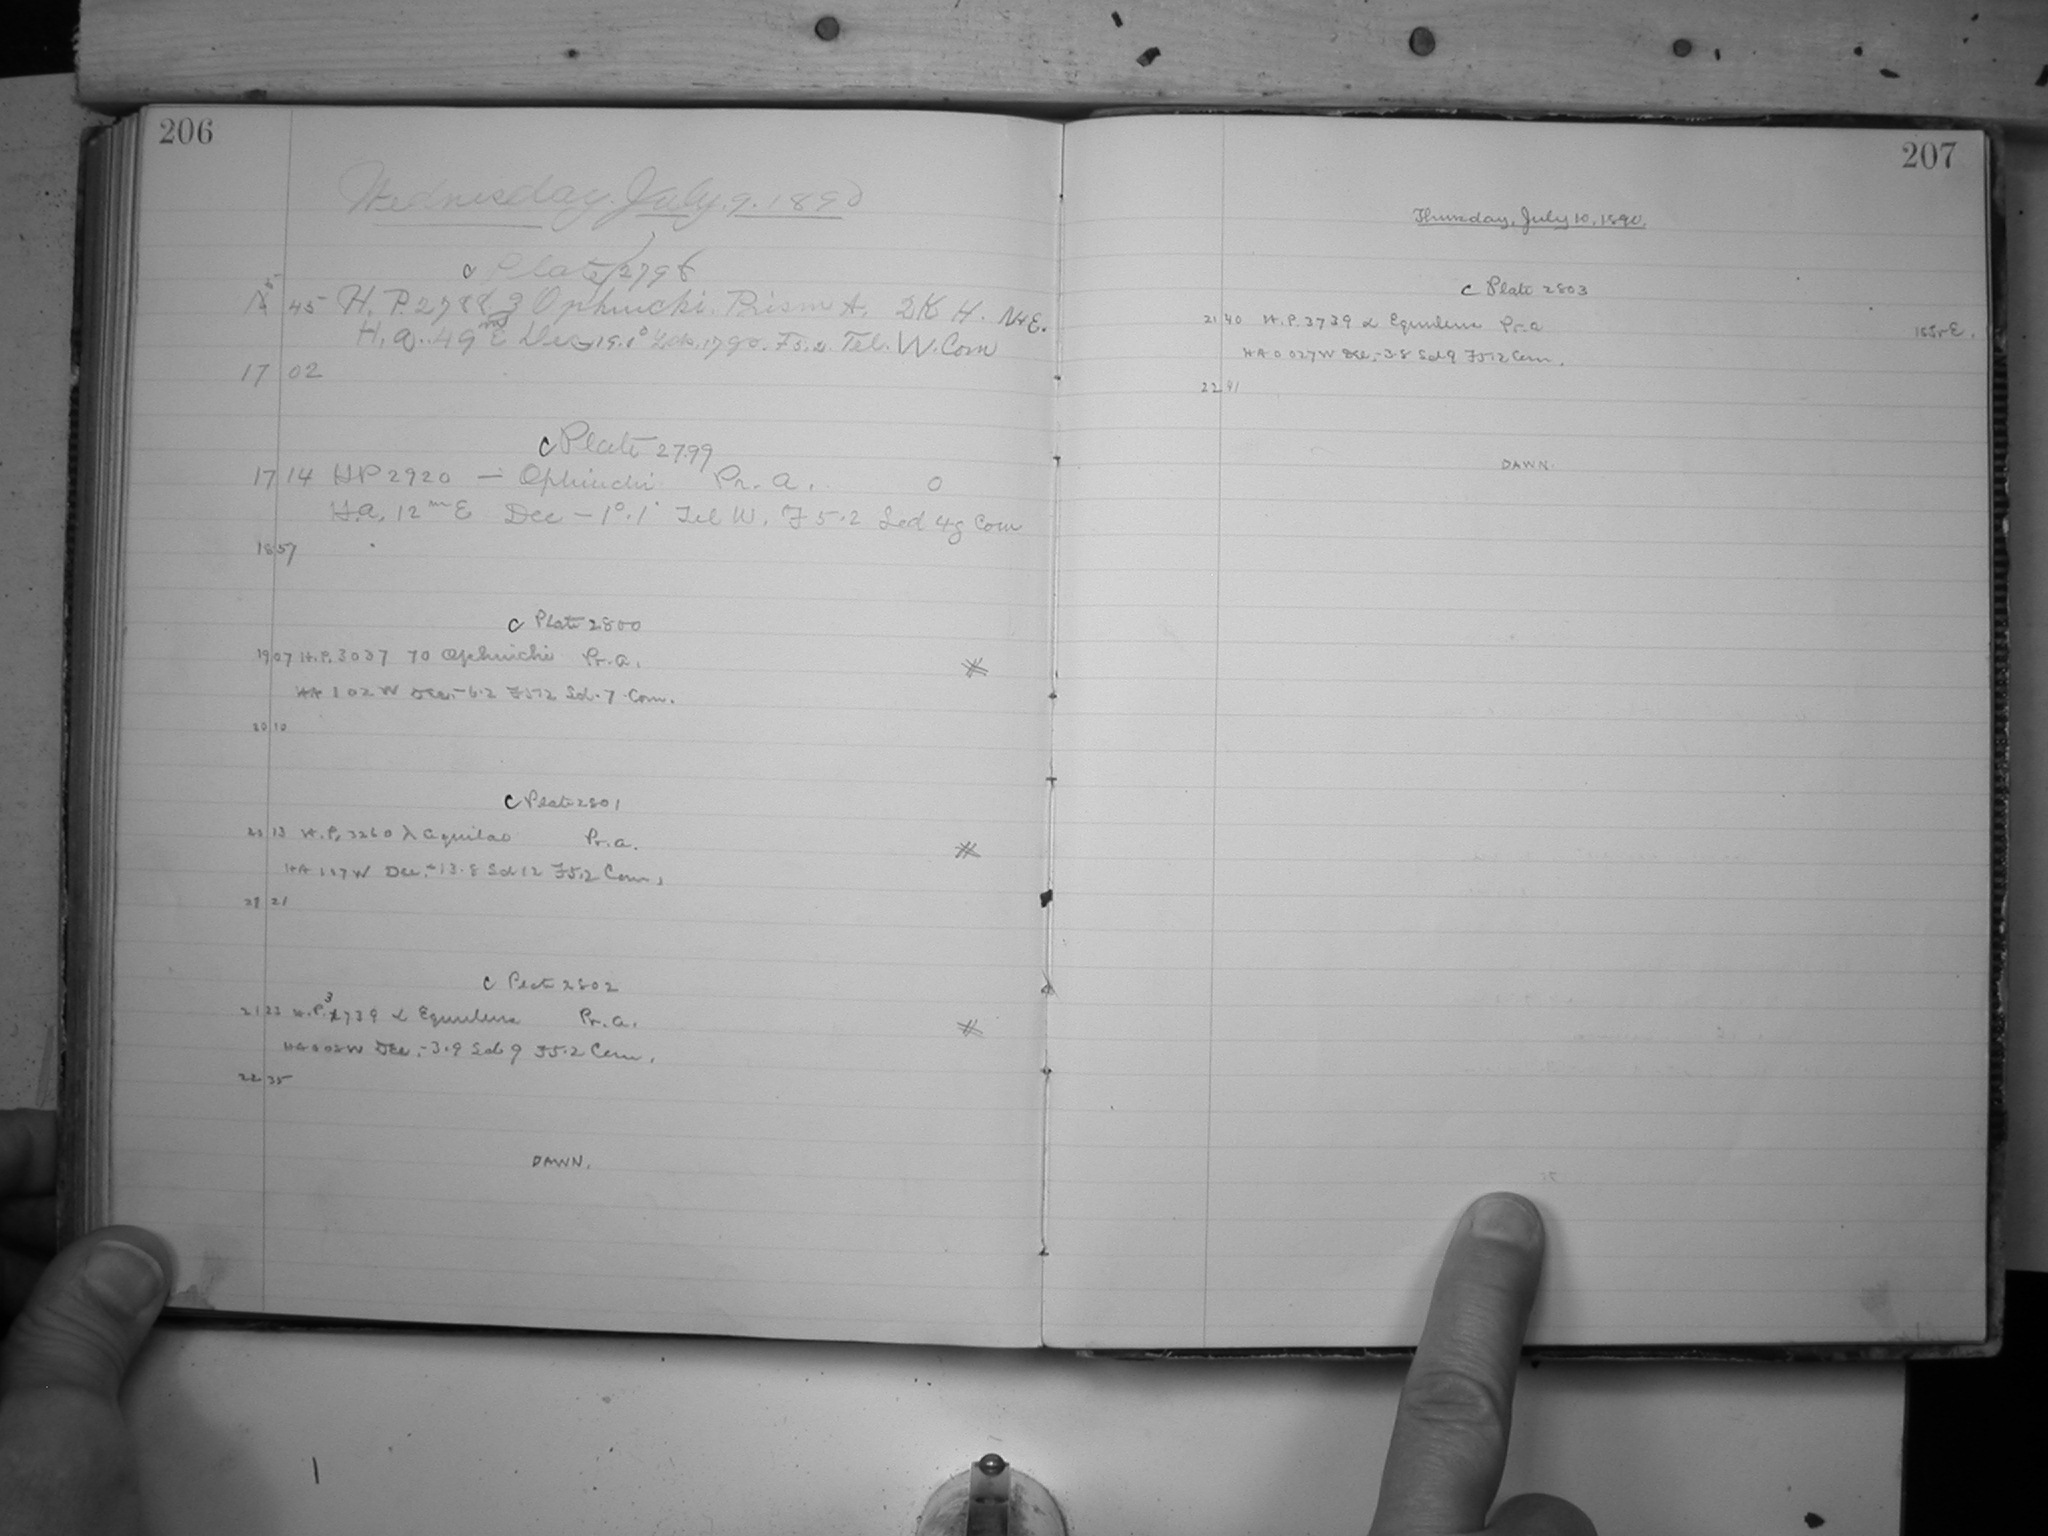 206
Wednesday. July. 9. 1890
c Plate 2798
45 H. P. 2788 Ophiuchi. Prism A. 2K H. N+E.
H. a. 49 E Dec 19.1° F5.2. Tel. W. Com
17 02
c Plate 2799
17 14 HP 2920 — Ophiuchi Pr. a. 0
H.a. 12 m E Dec - 1°.1' Tel W. F 5.2 Sed 4g Com
18 57
c Plate 2800
19 07 H.P. 3037 70 Ophiuchi Pr. a.
HA 1 02 W Dec. -6.2 F5.2 Sd. 7 Com.
20 10
c Plate 2801
20 13 H.P. 3260 λ Aquilae Pr. a.
HA 1 17 W Dec. -13.8 Sd 12 F5.2 Com.
21 21
c Plate 2802
21 23 H.P. 3739 α Equuleus Pr. a.
W Dec. -3.9 Sd 9 F5.2 Com.
22 35
DAWN.
207
Thursday, July 10, 1890.
c Plate 2803
21 40 H.P. 3739 α Equuleus Pr. a
HA 0 027 W Dec. -3.8 Sd 9 F5.2 Com.
22 41
DAWN.